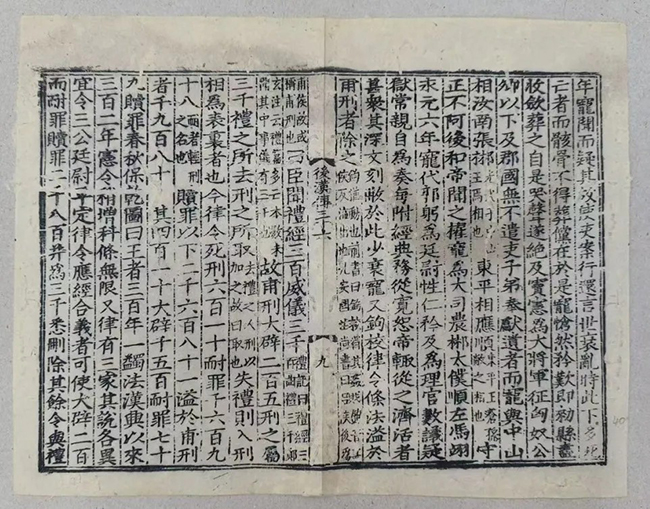 年寵聞而疑其故使吏案行還言世衰亂時此下多死
亡者而骸骨不得葬儻在於是寵愴然矜歎即勑縣盡
收斂葬之自是哭聲遂絕及竇憲為大將軍征匈奴公
卿以下及郡國無不遣吏子弟奉獻遺者而寵與中山
相汝南張郴東平相應順守
正不阿後和帝聞之擢寵為大司農郴太僕順左馮翊
永元六年寵代郭躬為廷尉性仁矜及為理官數議疑
獄常親自為奏每附經典務從寬恕帝輒從之濟活者
甚衆其深文刻敝於此少衰寵又鉤校律令條法溢於
甫刑者除之
後漢傳三十六
九
甫侯故或稱甫刑也曰臣聞禮經三百威儀三千
玄注云禮篇多亡本數未聞其中事儀有三千也故甫刑大辟二百五刑之屬
三千禮之所去刑之所取去禮之人刑以加之故曰取也失禮則入刑
相為表裏者也今律令死刑六百一十耐罪千六百九
十八耐者輕刑之名也贖罪以下二千六百八十一溢於甫刑
者千九百八十其四百一十大辟千五百耐罪七十
九贖罪春秋保乾圖曰王者三百年一蠲法漢興以來
三百二年憲令稍增科條無限又律有三家其說各異
宜令三公廷尉平定律令應經合義者可使大辟二百
而耐罪贖罪二千八百并為三千悉刪除其餘令與禮